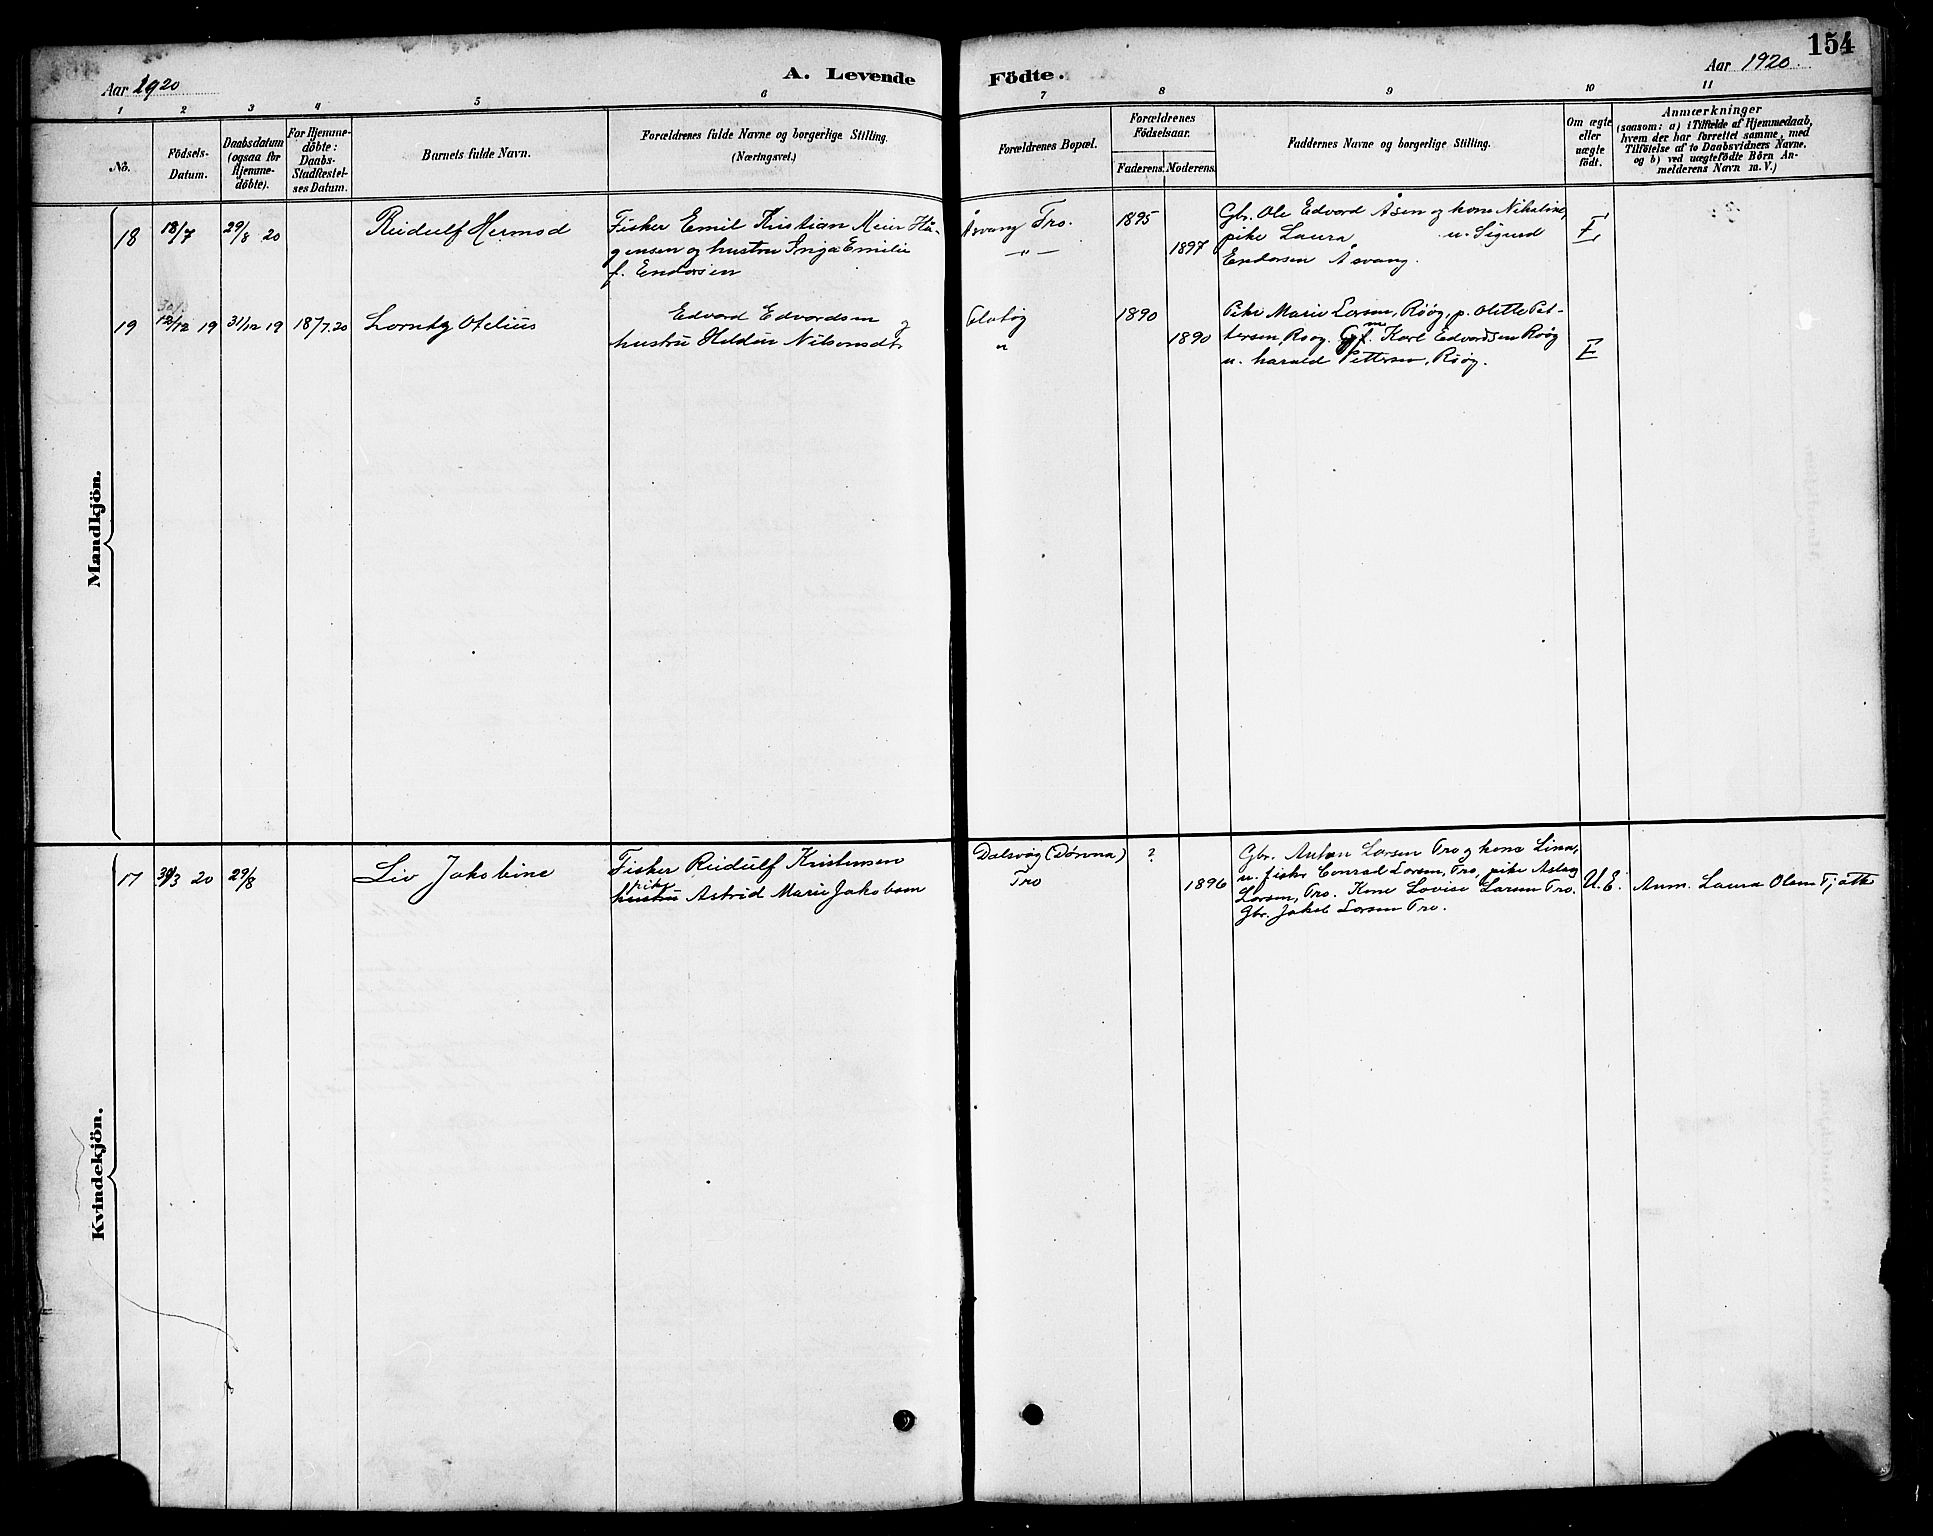 154
Aar 1920
A. Levende Födte.
Aar 1920
1 2 3 4 5 6 7 8 9 10 11
No.
Födsels-
Datum.
Daabsdatum
(ogsaa for
Hjemme-
döbte).
For Hjemme-
döbte:
Daabs-
Stadfæstel-
ses Datum.
Barnets fulde Navn.
Forældrenes fulde Navne og borgerlige Stilling.
(Næringsvei.)
Forældrenes Bopæl.
Forældrenes
Födselsaar.
Faderens. Moderens.
Faddernes Navne og borgerlige Stilling.
Om ægte
eller
uægte
födt.
Anmærkninger
(saasom: a) i Tilfælde af Hjemmedaab,
hvem der har forrettet samme, med
Tilföielse af to Daabsvidners Navne,
og b) ved uægtefödte Börn An-
melderens Navn m. V.)
Mandkjön.
18
18/7
29/8 20
Reidulf Hermod
Fisker Emil Kristian Meier Hå-
gensen og hustru Inga Emilie
f. Endorsen
Åsvang Tro.
— " —
1895
1897
Gbr. Ole Edvard Åsen og kone Nikoline,
pike Laura u. Sigurd
Endorsen Åsvang.
E
19
12/12 19
31/12 19
18/7.20
Lornty Otelius
Edvard Edvardsen og
hustru Heldur Nilsensdt.
Flatøy
"
1890
1890
Pike Marie Larsen, Røøy, p. Olette Pet-
tersen, Røøy. Karl Edvardsen Røøy
u. harald Pettersen, Røøy.
E
Kvindekjön.
17
30/3 20
29/8
Liv Jakobine
Fisker Reidulf Kristensen
pike
hustru Astrid Marie Jakobsen
Dalsvåg (Dønna)
Tro
?
1896
Gbr. Anton Larsen Tro og kone Lina,
u. fisker Conrad Larsen, Tro, pike Aslaug
Larsen, Tro. Kone Lovise Larsen Tro.
Gbr. Jakob Larsen Tro.
U. E.
Anm. Laura Olsen Tjøtta